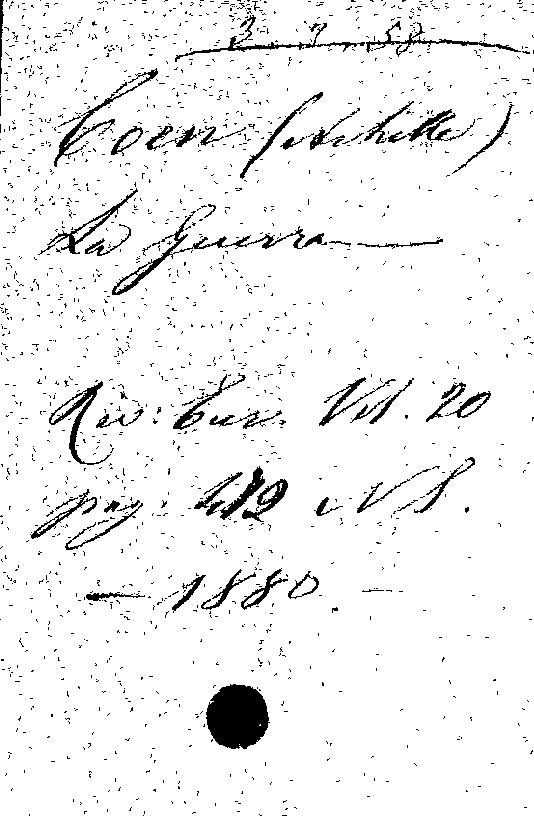 3. 3. 38
Coen (Achille)
La Guerra
Riv: Eur. Vol. 20
pag. N S.
— 1880 —